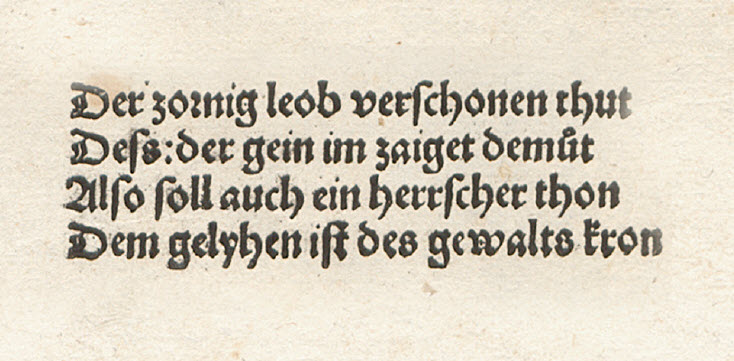 Der zornig leob verſchonen thut
Deſs: der gein im zaiget demůt
Alſo ſoll auch ein herrſcher thon
Dem gelyhen iſt des gewalts kron